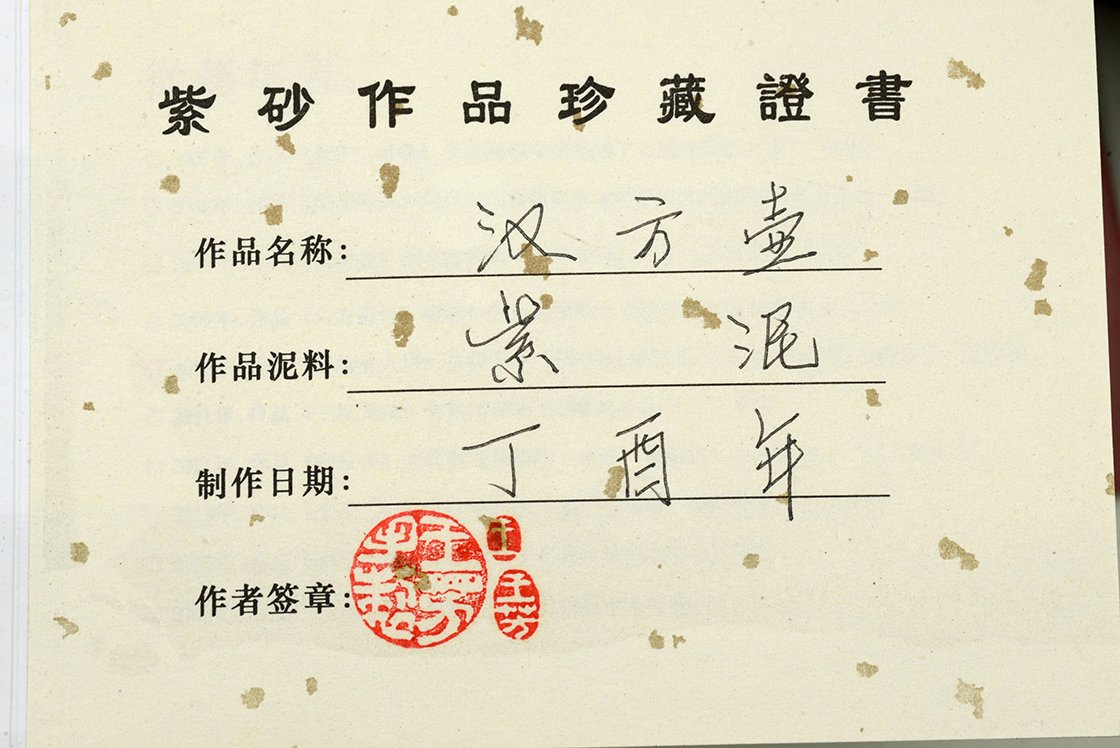 紫砂作品珍藏證書
作品名称: 汉方壶
作品泥料: 紫泥
制作日期: 丁酉年
作者签章: